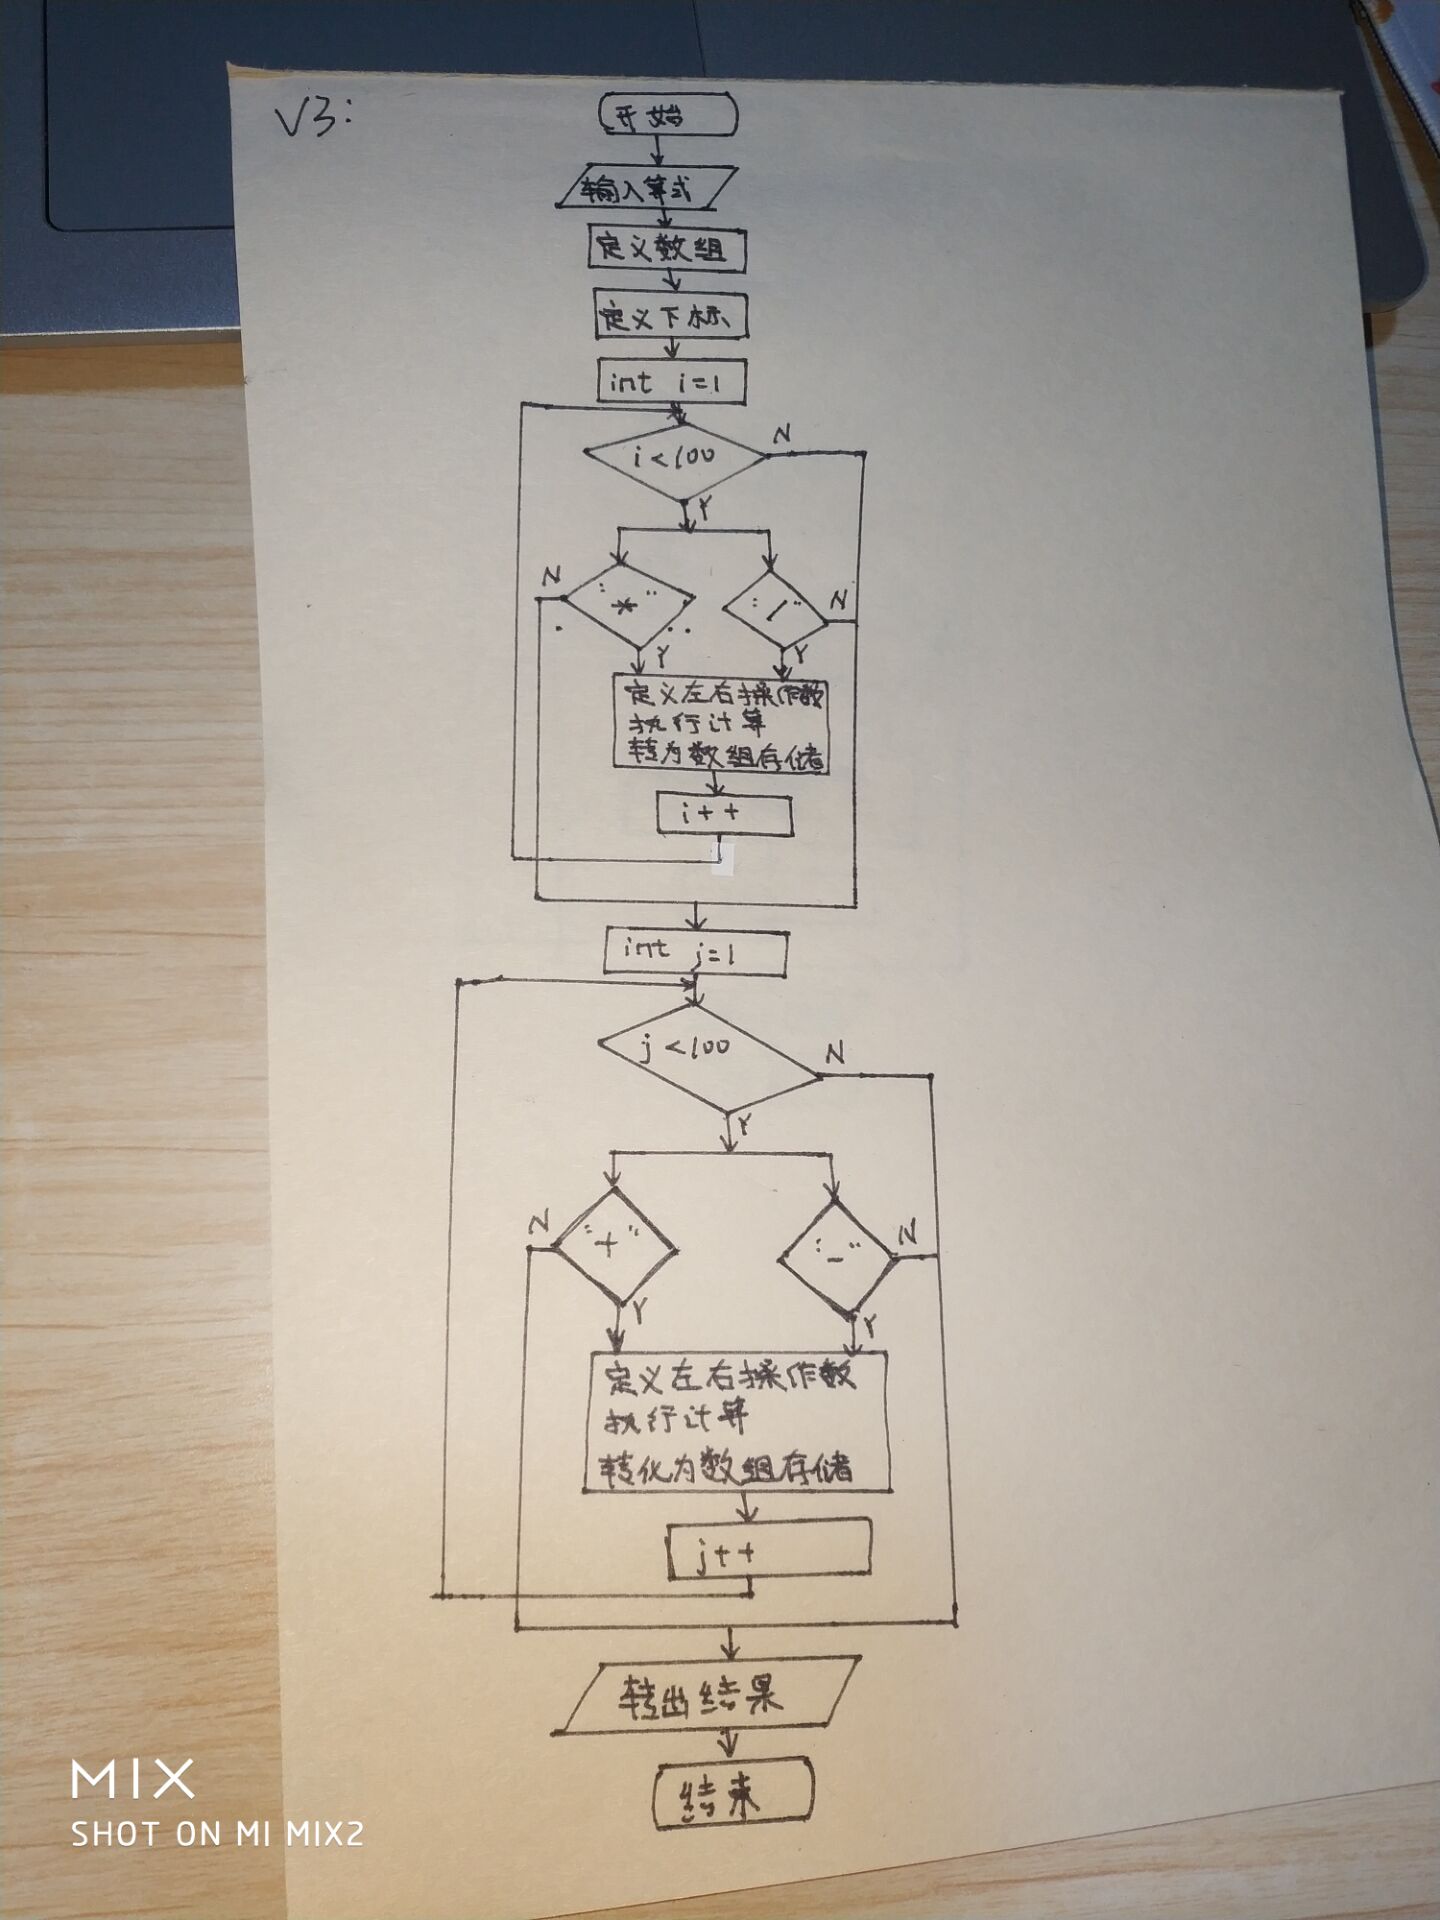 V3:
开始
输入算式
定义数组
定义下标
int i=1
i<100
N
Y
N
"*"
"/"
N
Y
Y
定义左右操作数
执行计算
转为数组存储
i++
int j=1
j<100
N
Y
N
"+"
"-"
N
Y
Y
定义左右操作数
执行计算
转化为数组存储
j++
转出结果
结束
MIX
SHOT ON MI MIX2